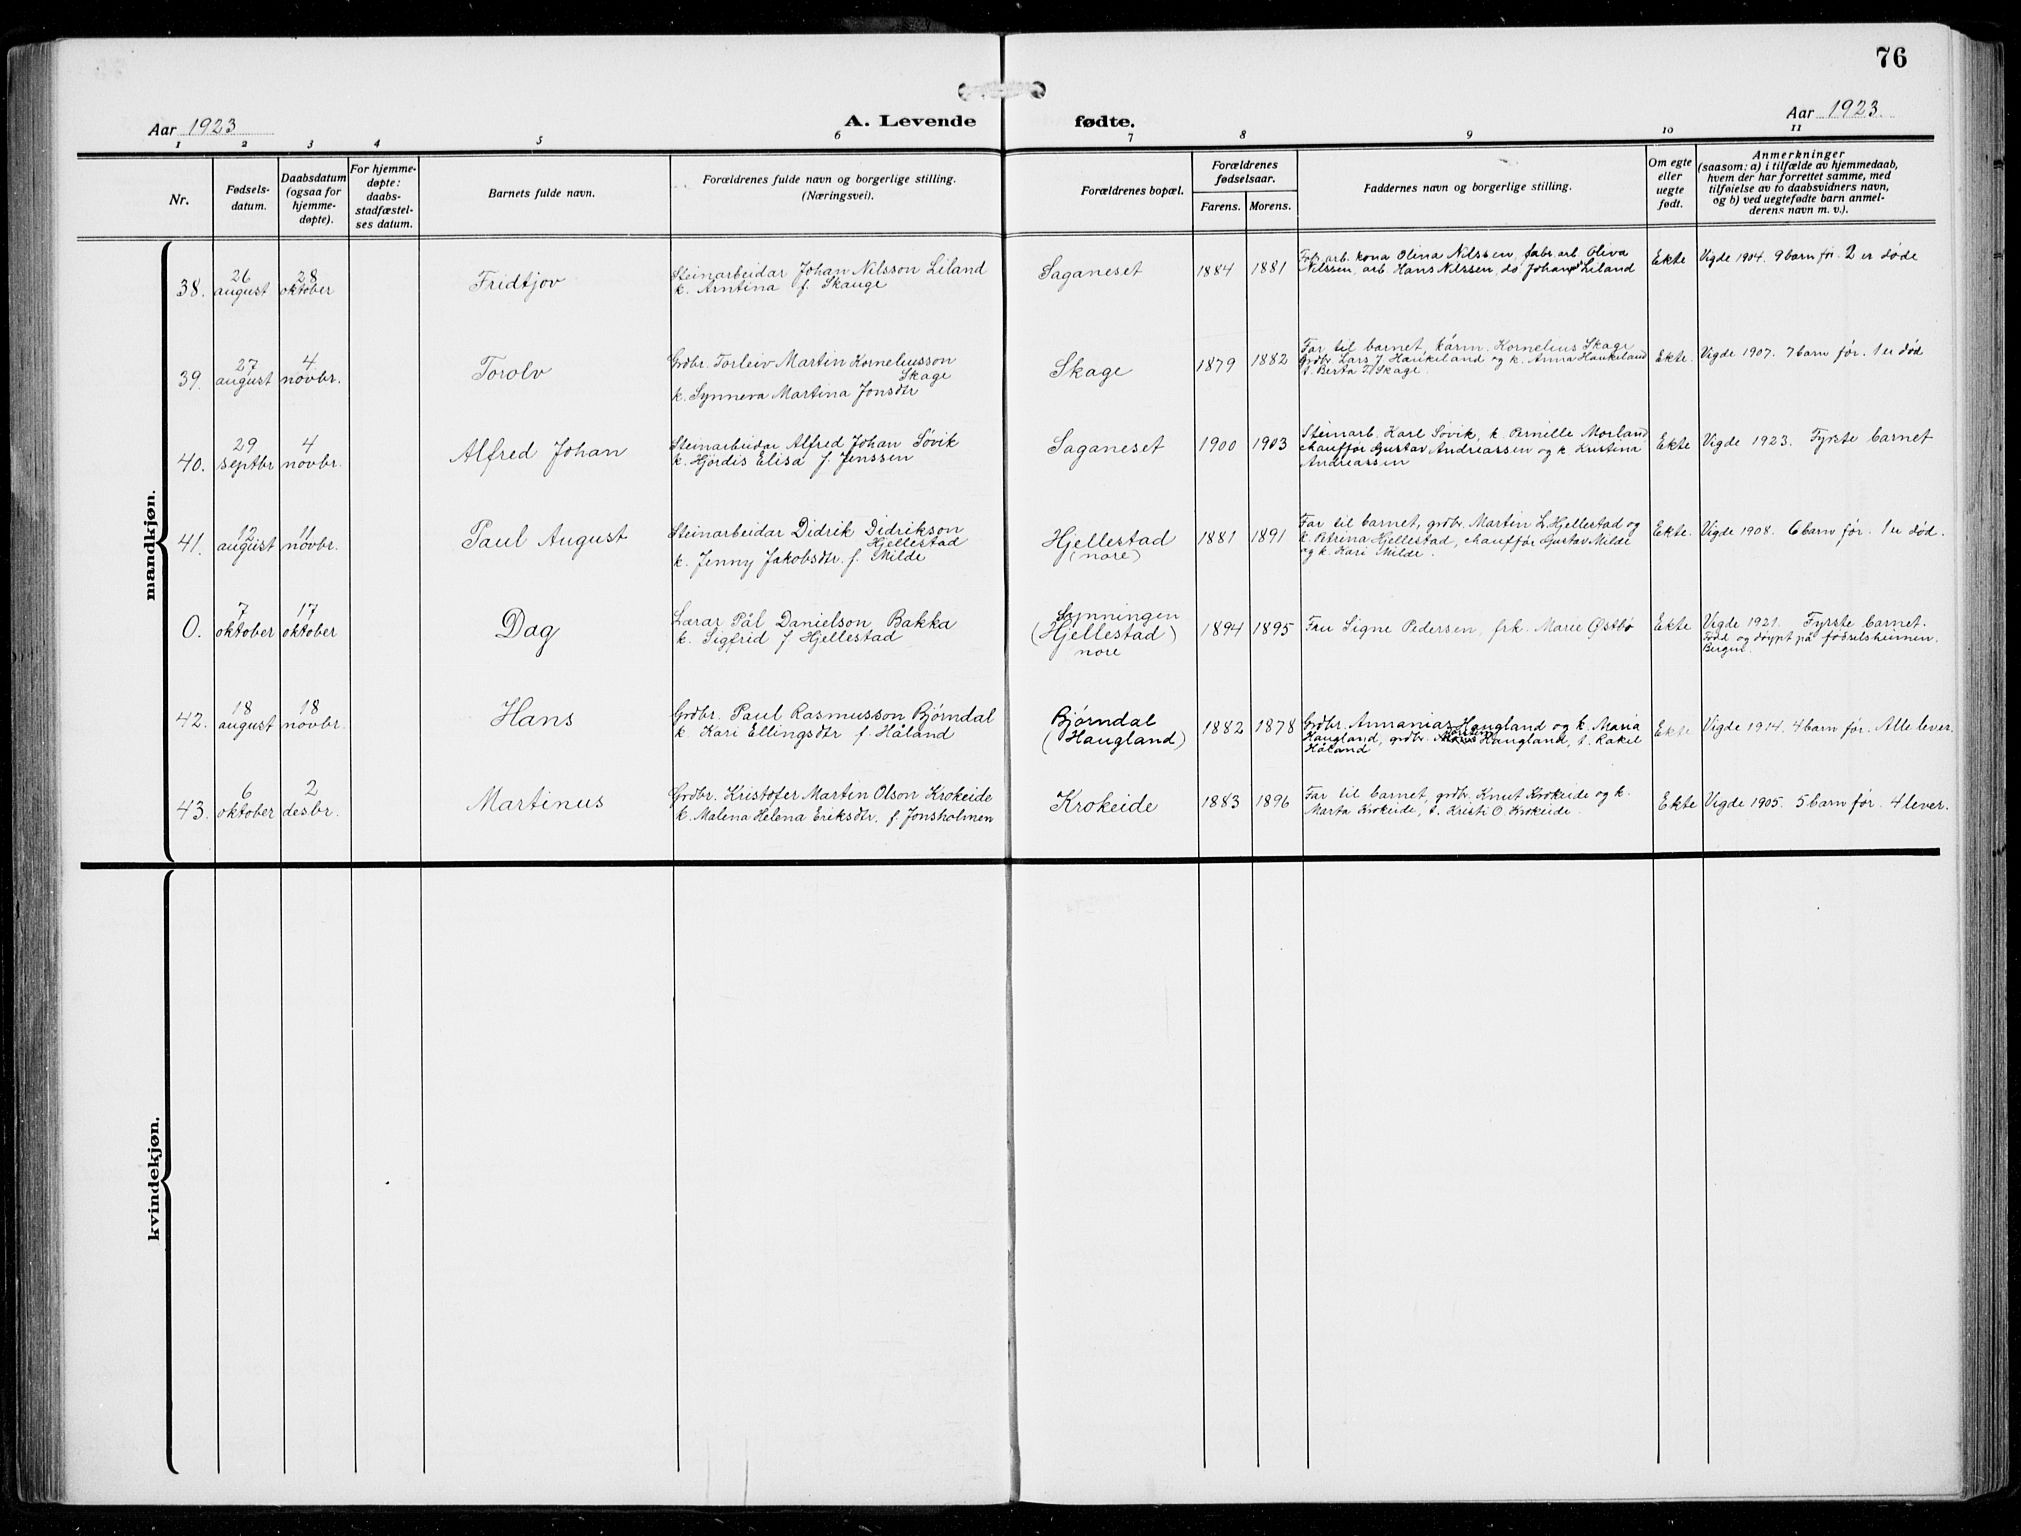 76
Aar 1923
A. Levende fødte.
Aar 1923.
1 2 3 4 5 6 7 8 9 10 11
Nr.
Fødsels-
datum.
Daabsdatum
(ogsaa for
hjemme-
døpte).
For hjemme-
døpte:
daabs-
stadfæstel-
ses datum.
Barnets fulde navn.
Forældrenes fulde navn og borgerlige stilling.
(Næringsvei).
Forældrenes bopæl.
Forældrenes
fødselsaar.
Farens. Morens.
Faddernes navn og borgerlige stilling.
Om egte
eller
uegte
født.
Anmerkninger
(saasom: a) i tilfælde av hjemmedaab,
hvem der har forrettet samme, med
tilføielse av to daabsvidners navn,
og b) ved uegtefødte barn anmel-
derens navn m. v.).
mandkjøn.
38.
26
august
28
oktober
Fridtjov
Steinarbeidar Johan Nilsson Liland
k. Arntina f. Skauge
Saganeset
1884 1881
Fab. arb. kona Olina Nilssen, fabr. arb. Oliva
Nilssen, arb. Hans Nilssen, do Johan Liland
Ekte
Vigde 1904. 9 barn før. 2 er døde
39.
27
august
4
novbr.
Torolv
Grdbr. Torleiv Martin Korneliusson
Skage
k. Synneva Martina Jonsdtr
Skage
1879 1882
Far til barnet, kårm. Kornelius Skage
Grdbr. Lars J. Haukeland og k. Anna Haukeland
t. Berta T. Skage.
Ekte.
Vigde 1907. 7 barn før. 1 er død
40.
29
septbr
4
novbr.
Alfred Johan
Steinarbeidar Alfred Johan Søvik
k. Hjørdis Elisa f. Jenssen
Saganeset
1900 1903
Steinarb. Karl Søvik, k. Pernille Morland
chauffør Gustav Andreassen og k. Kristina
Andreassen
Ekte
Vigde 1923. Fyrste barnet
41.
12
august
11
novbr.
Paul August
Steinarbeidar Didrik Didrikson
Hjellestad
k. Jenny Jakobsdtr. f. Milde
Hjellestad
(nore)
1881 1891
Far til barnet, grdbr. Martin L. Hjellestad og
k. Petrina Hjellestad, chauffør Gustav Milde
og k. Kari Milde.
Ekte.
Vigde 1908. 6 barn før. 1 er død.
0.
7
oktober
17
oktober
Dag
Lærar Pål Danielson Bakka
k. Sigfrid f Hjellestad
Synningen
(Hjellestad)
nore
1894 1895
Fru Signe Pedersen, frk. Marie Østbø
Ekte
Vigde 1921. Fyrste barnet.
Fødd og døypt på fødselsheimen.
Bergen.
42.
18
august
18
novbr.
Hans
Grdbr. Paul Rasmusson Bjørndal
k. Kari Ellingsdtr f. Håland
Bjørndal
(Haugland)
1882 1878
Grdbr. Annanias Haugland og k. Maria
Haugland, grdbr. Haugland, t. Rakel
Håland
Ekte
Vigde 1914. 4 barn før. Alle lever.
43.
6
oktober
2
desbr.
Martinus
Grdbr. Kristofer Martin Olson Krokeide
k. Malena Helena Eriksdtr. f. Jonsholmen
Krokeide
1883 1896
Far til barnet, grdbr. Knut Krokeide og k.
Marta Krokeide, t. Kristi O. Krokeide.
Ekte
Vigde 1905. 5 barn før. 4 lever.
kvindekjøn.